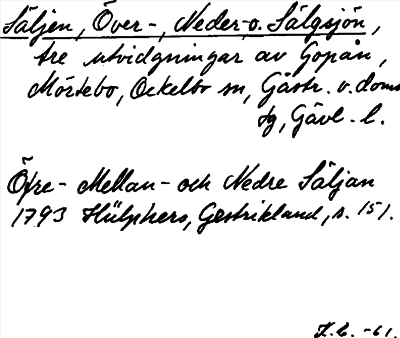 Säljen, Över-, Neder- o. Sälgsjön,
tre utvidgningar av Gopån,
Mörtebo, Ockelbo sn, Gästr. v. doms
tg, Gävl. l.
Öfre- Mellan- och Nedre Säljan
1793 Hülphers, Gestrikland, s. 151.
-61.